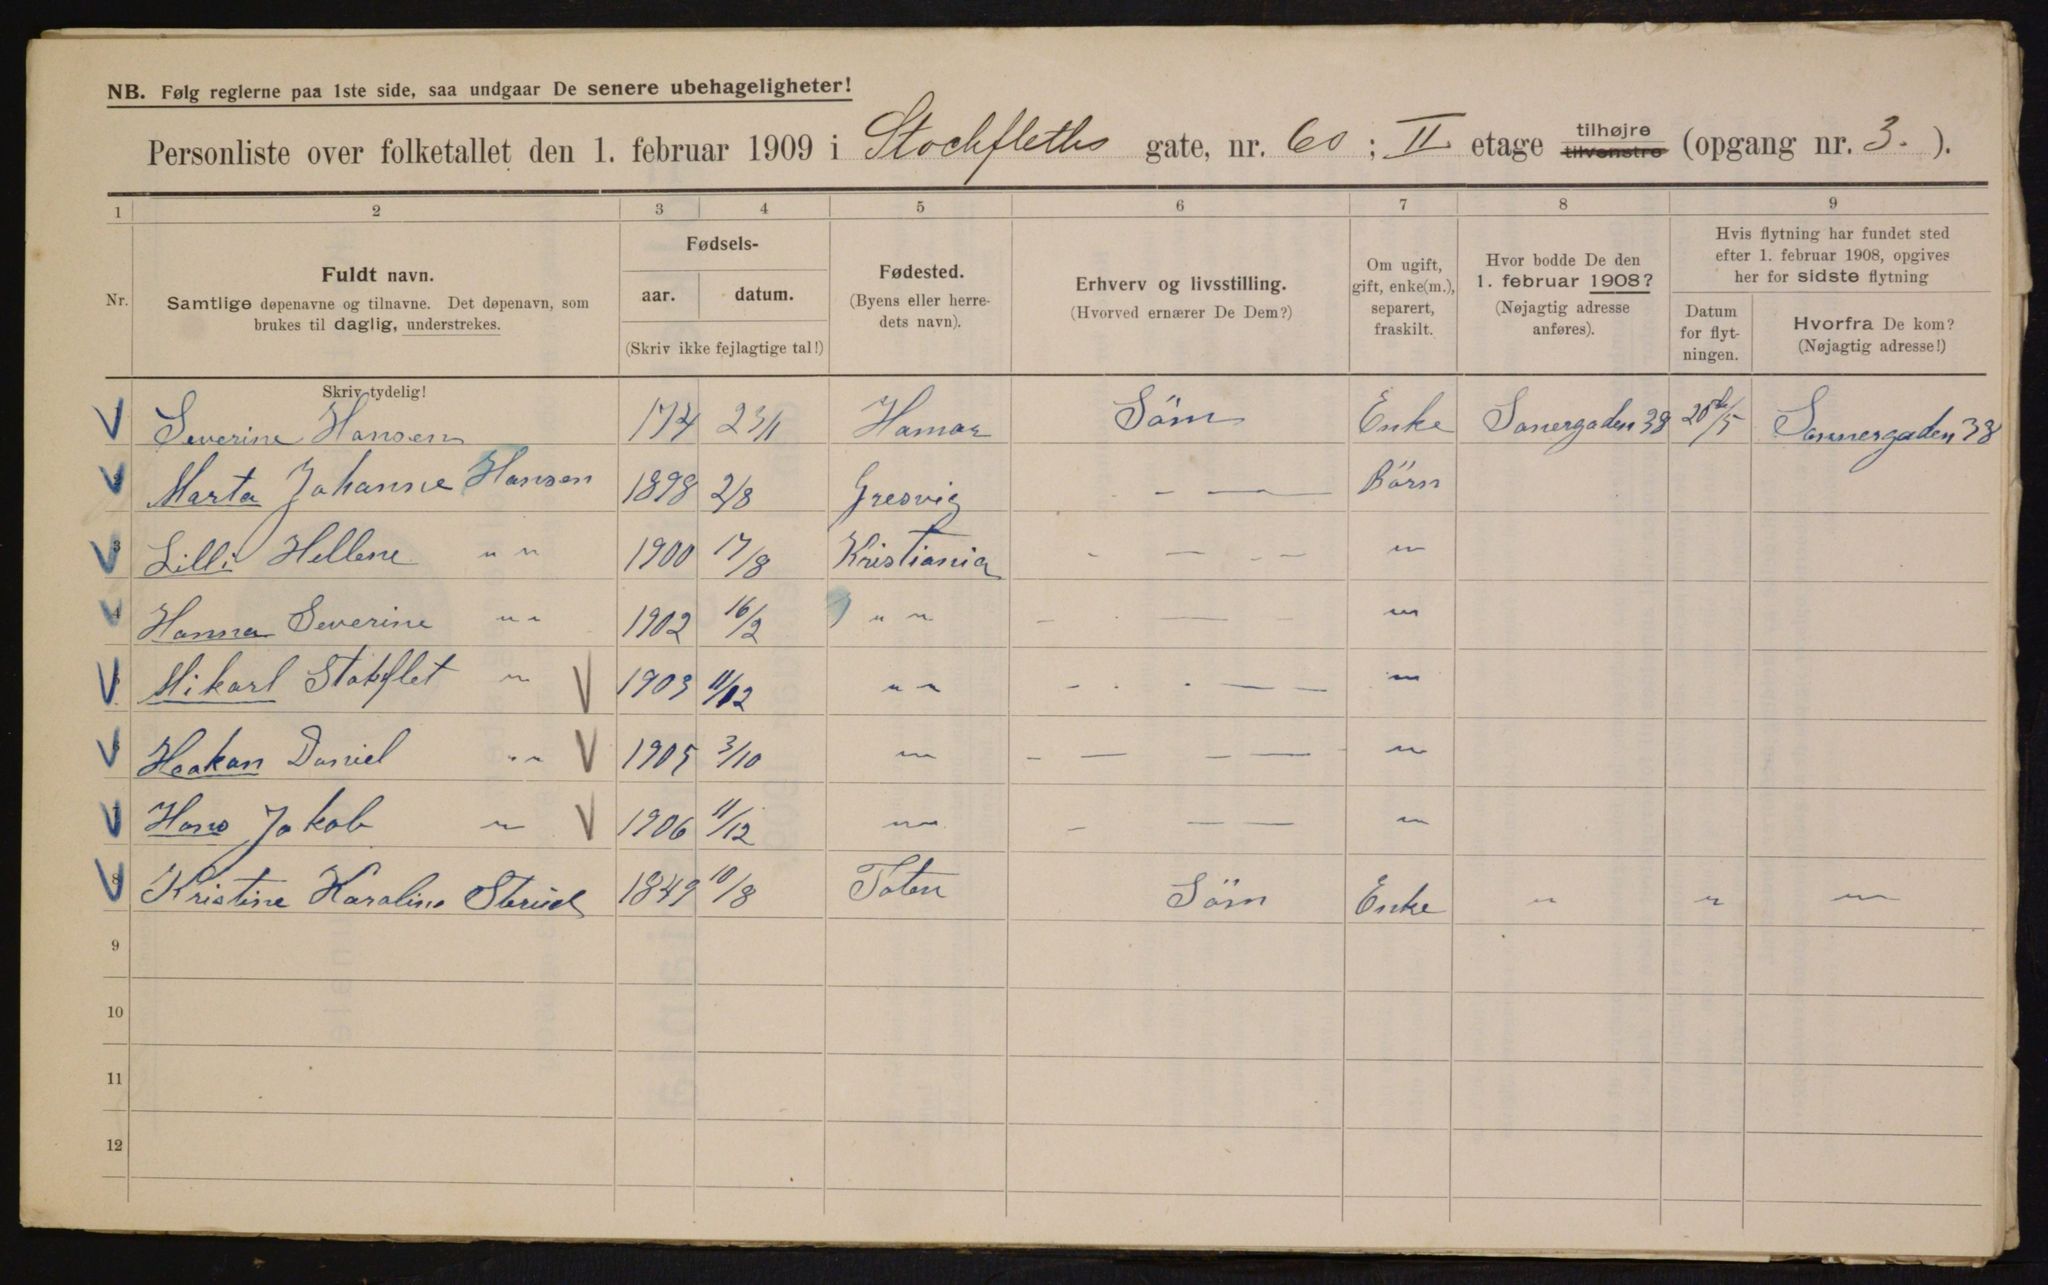 NB. Følg reglerne paa 1ste side, saa undgaar De senere ubehageligheter!
Personliste over folketallet den 1. februar 1909 i Stockfleths gate, nr. 60 ; II etage tilhøjre tilvenstre (opgang nr. 3. ).
1 2 3 4 5 6 7 8 9
Nr. Fuldt navn. Samtlige døpenavne og tilnavne. Det døpenavn, som brukes til daglig, understrekes.
Fødsels-
aar. datum.
(Skriv ikke fejlagtige tal!)
Fødested. (Byens eller herredets navn).
Erhverv og livsstilling. (Hvorved ernærer De Dem?)
Om ugift, gift, enke(m.), separert, fraskilt.
Hvor bodde De den 1. februar 1908? (Nøjagtig adresse anføres).
Hvis flytning har fundet sted efter 1. februar 1908, opgives her for sidste flytning
Datum for flytningen. Hvorfra De kom? (Nøjagtig adresse!)
Skriv tydelig!
Severine Hansen 174 23/1 Hamar Söm Enke Sanergaden 38 Sannergaden 38
2 Marta Johanne Hansen 1898 2/8 Gresvig - — Börn
3 Lilli Hellene " " 1900 17/8 Kristiania - — - — "
4 Hanna Severine " " 1902 16/2 " " - - — - "
Mikarl Stokflet " V 1903 11/12 " " - - - — — "
Haakan Daniel " " V 1905 3/10 " - — - — "
Hans Jakob " V 1906 11/12 " - — — "
8 Kristine Karoline 1849 10/8 Toten Söm Enke " " "
9
10
11
12